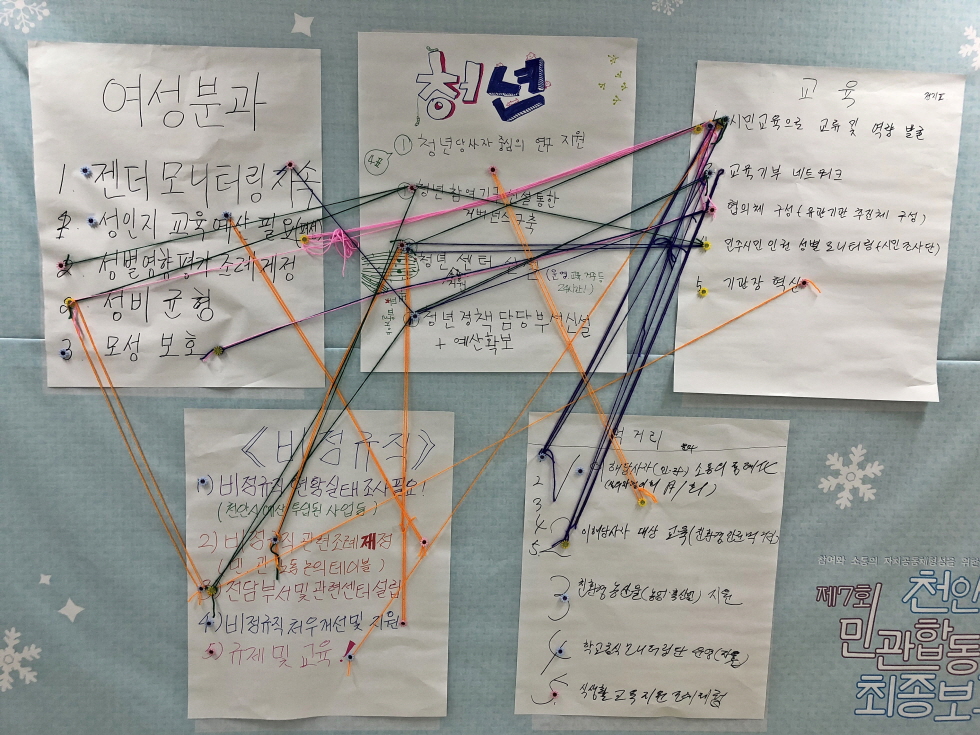 여성분과
1. 젠더 모니터링 지속
2. 성인지 교육예산 필요
성별영향평가 조례 제정
성비 균형
3 모성 보호
청년
① 청년당사자 중심의 연구 지원
청년 참여기구 신설통한
거버넌스 구축
청년 센터
청년정책 담당부서신설
+ 예산확보
교육
시민교육으로 교류 및 역량 발굴
교육기부 네트워크
협의체 구성 (유관기관 추진체 구성)
민주시민 인권 성별 모니터링 (시민조사단)
5 기관장 혁신
《비정규직》
1) 비정규직 현황실태조사필요!
(천안시예산 투입된 사업 등)
2) 비정규직 관련조례제정
논의테이블)
전담부서및관련센터설립
4) 비정규직 처우개선및 지원
5) 규제 및 교육!
먹거리
1
2
3
4
5
이해당사자 소통의
이해당사자 대상 교육
3 친환경농산물 지원
4 학교급식 모니터링단 운영
5 식생활교육지원
참여와 소통의 자치공동체형성을 위한
제7회 천안
민관합동
최종보